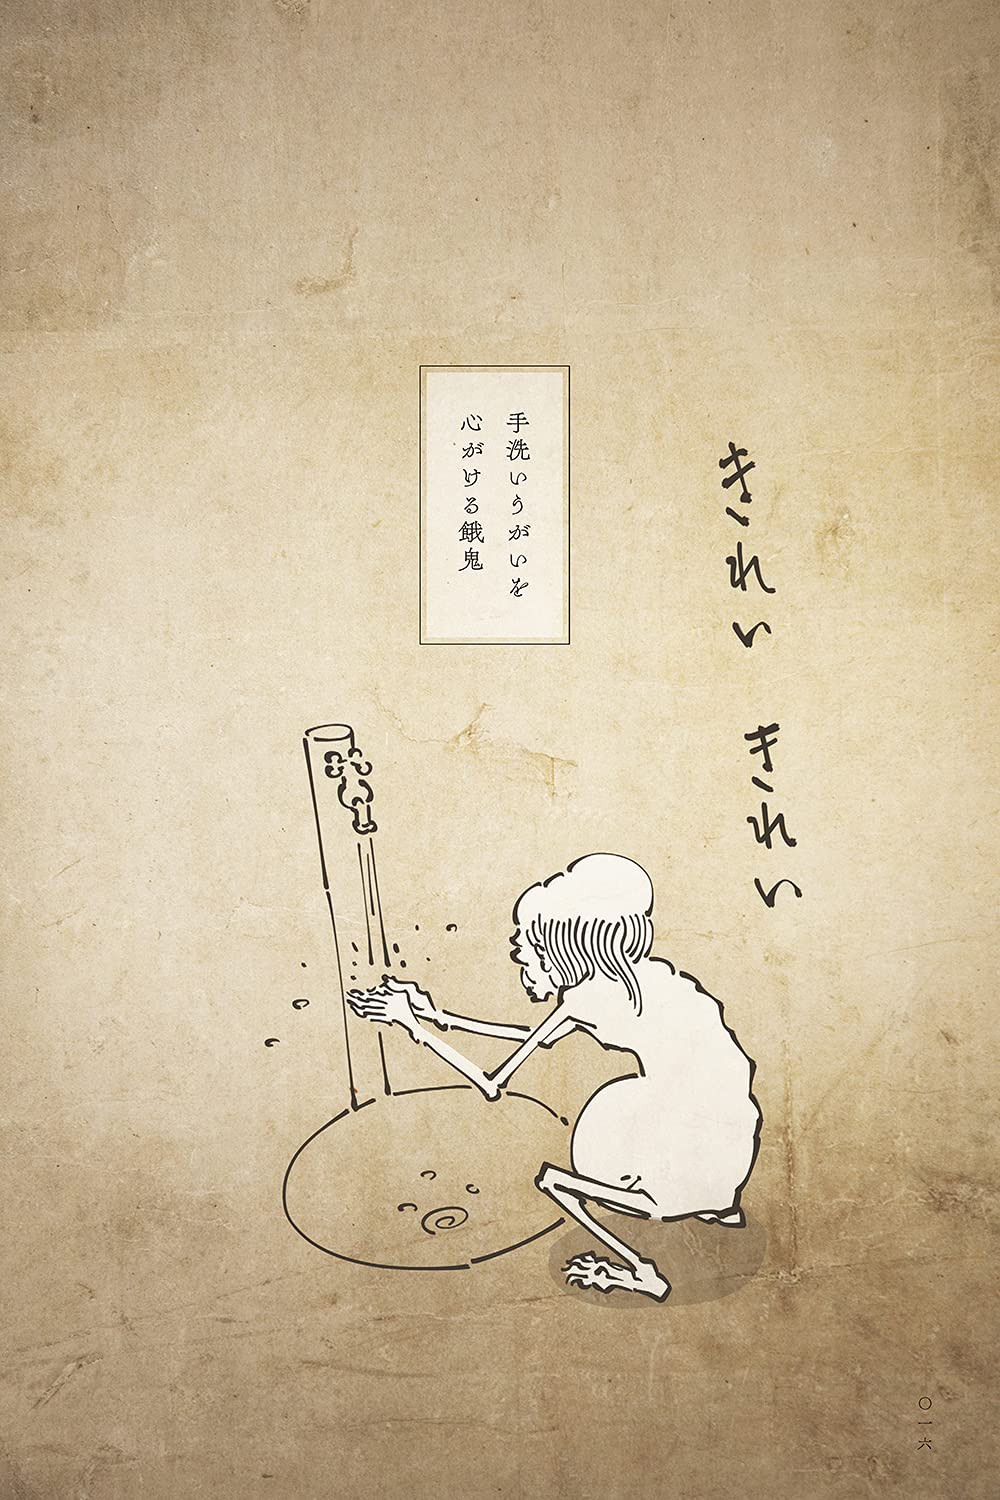 きれい　きれい
手洗いうがいを
心がける餓鬼
〇一六